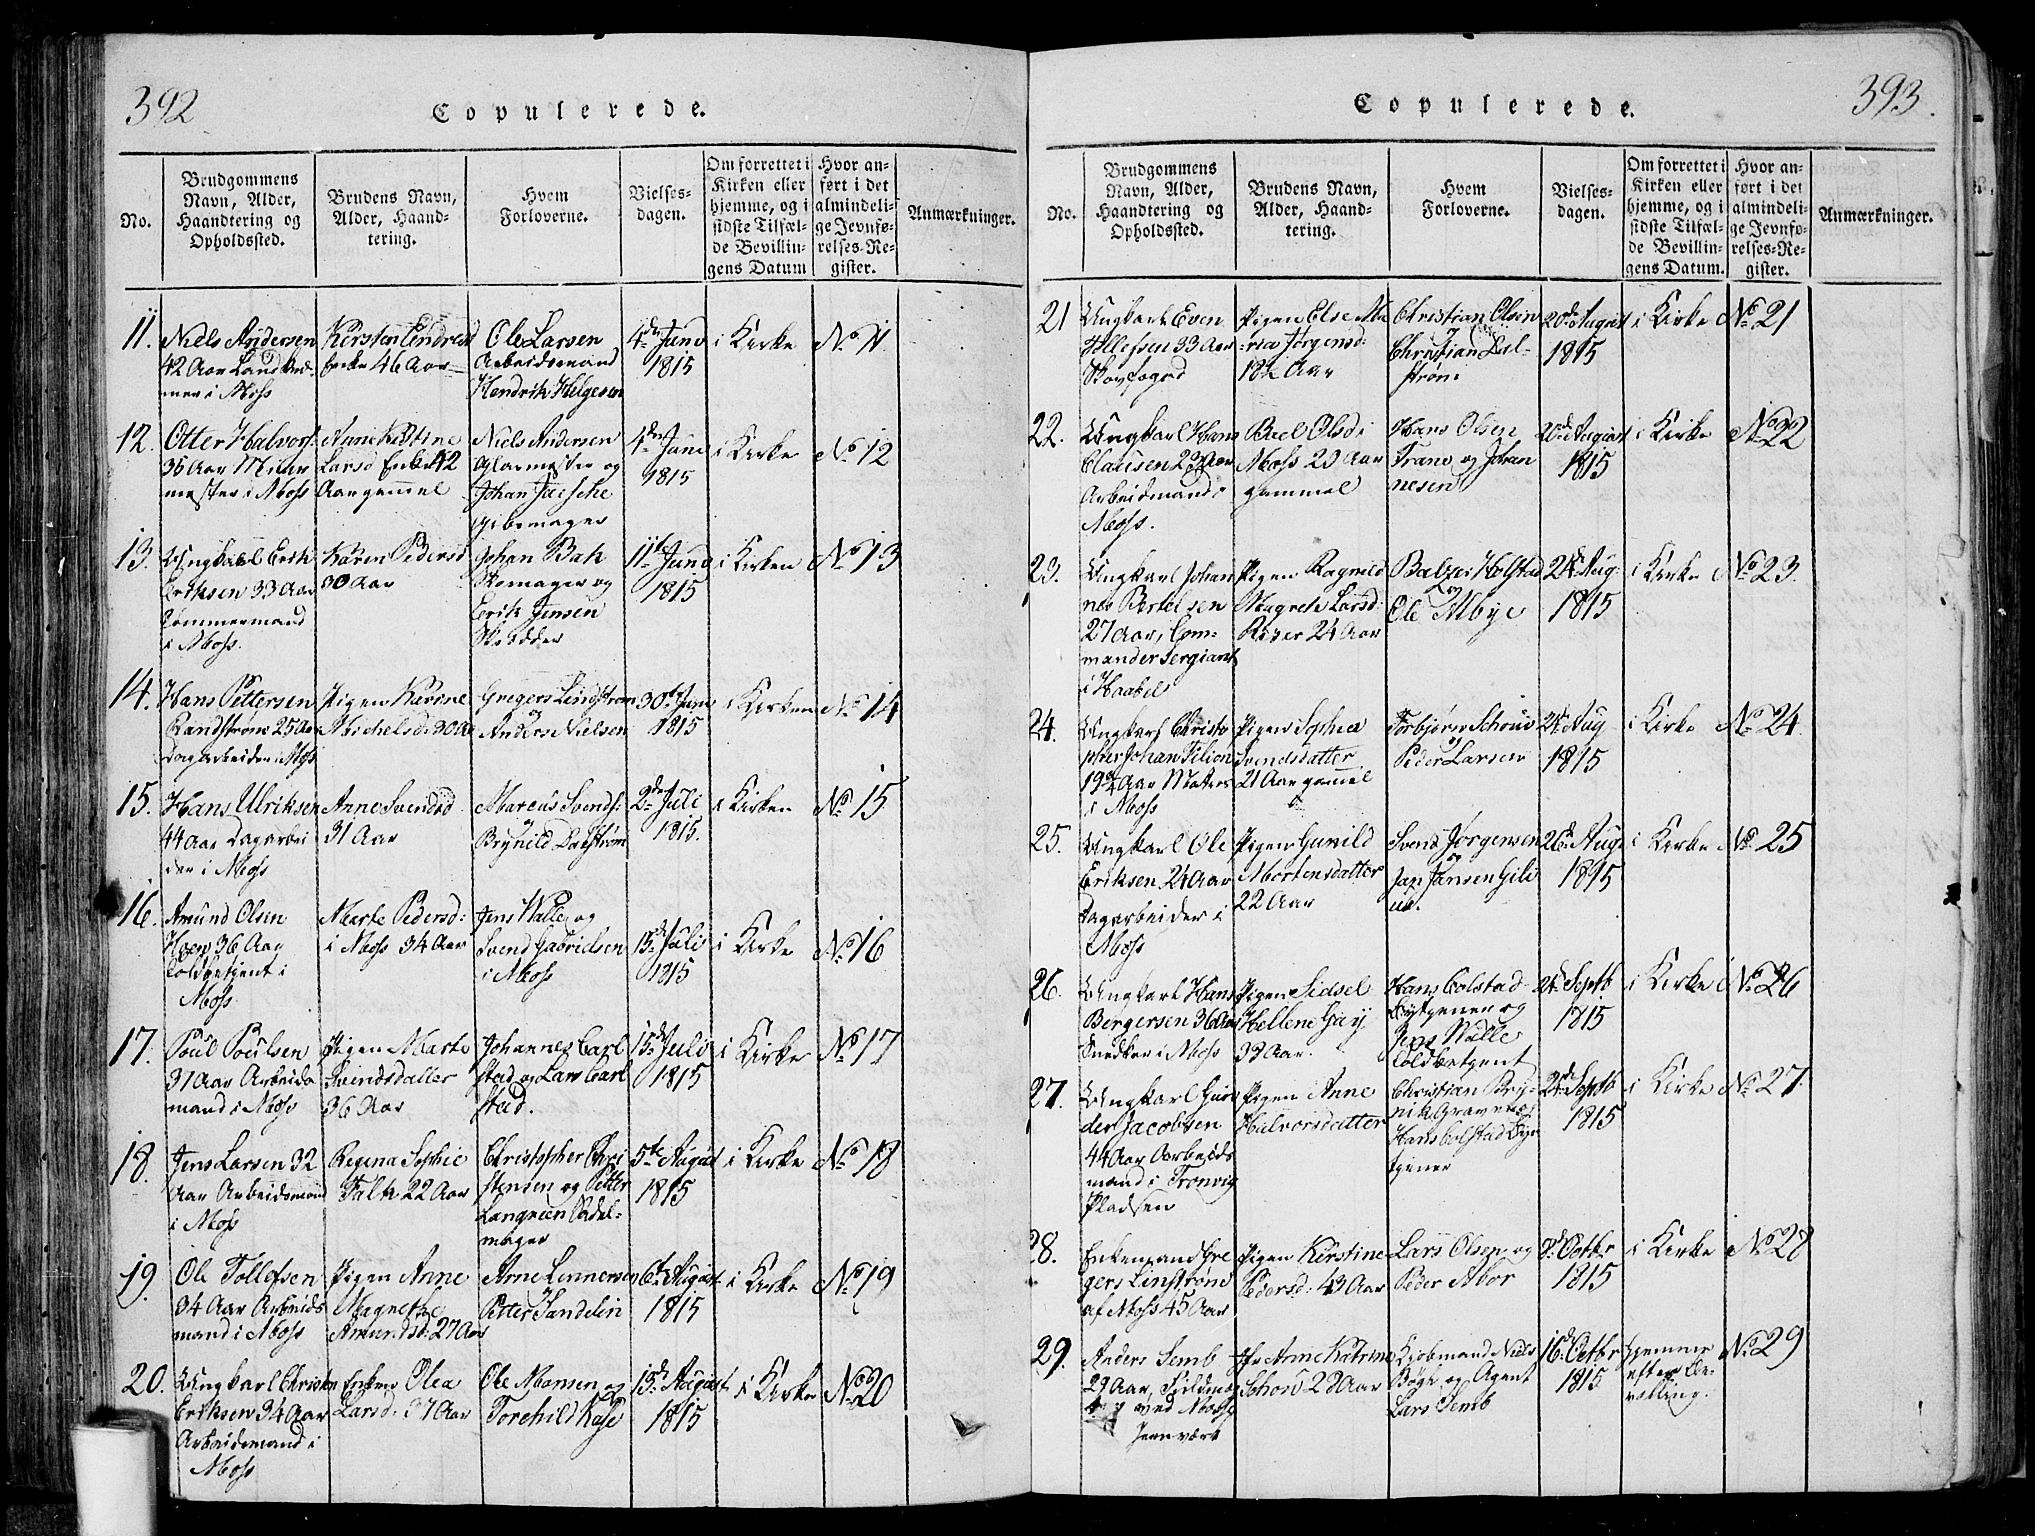 392
Copulerede.
No.
Brudgommens Navn, Alder, Haandtering og Opholdssted.
Brudens Navn, Alder, Haandtering.
Hvem Forloverne.
Vielsesdagen.
Om forrettet i Kirken eller hjemme, og i sidste Tilfælde Bevillingens Datum
Hvor anført i det almindelige Jevnførelses-Register.
Anmærkninger.
11. Niels Andersen
42 Aar
mer i Moss
Kirsten Endresd
Enke 46 Aar
Ole Larsen
Arbeidsmand
Hendrik Helgesen
4de Juno
1815
i Kirke
No 11
12. Otter Halvors:
36 Aar Muur
mester i Moss
Anne Kistine
Larsd Enke 42
Aar gamel
Niels Andersen
Glarmester og
Johan
Gibsmager
4de Juno
1815
i Kirke
No 12
13. Ungkarl Erik
Eriksen 33 Aar
Tømmermand
i Moss.
Karen Pedersd
30 Aar
Johan Bak
Skomager og
Erik Jensen
Skrædder
11te Juno
1815
i Kirken
No 13
14. Hans Pettersen
Randstrøm 25 Aar
Dagarbeider i Moss
Pigen Karine
Michelsd: 30 Aar
Gregers Lindstrøm
og
Anders Nielsen
30te Juno
1815
i Kirken
No 14
15. Hans Ulriksen
44 Aar Dagarbei
der i Moss
Anne Svendsd
31 Aar
Marcus Svends:
og
Brynild
2de Juli
1815.
i Kirken
No 15
16. Amund Olsen
Hoen 36 Aar
Toldbetjent i
Moss
Marte Pedersd:
i Moss 34 Aar
Jens Walle og
Svend Gabrielsen
i Moss
15de Juli
1815
i Kirke
No 16
17. Poul Poulsen
31 Aar Arbeids
mand i Moss
Pigen Marte
Svendsdatter
36 Aar
Johannes Carl
stad og Lars Carl
stad.
15de Juli
1815
i Kirke
No 17
18. Jens Larsen 32
Aar Arbeidsmand
i Moss
Regina Sophie
Falk 22 Aar
Christopher Chri
stensen og Petter
Langreen Sadel-
mager
5te August
1815
i Kirke
No 18
19. Ole Tollofsen
34 Aar Arbeids
mand i Moss
Pigen Anne
Magrethe
Amundsd: 27 Aar
Arne Lennersen
og
Petter Sandelin
6te August
1815
i Kirke
No 19
20. Ungkarl Christen
Eriksen 34 Aar
Arbeidsmand i
Moss
Enken Olea
Larsd: 37 Aar
Ole Monsen og
Torchild Kase
13de August
1815
i Kirke
No 20
393.
Copulerede.
No.
Brudgommens Navn, Alder, Haandtering og Opholdssted.
Brudens Navn, Alder, Haandtering.
Hvem Forloverne.
Vielsesdagen.
Om forrettet i Kirken eller hjemme, og i sidste Tilfælde Bevillingens Datum.
Hvor anført i det almindelige Jevnførelses-Register.
Anmærkninger.
21 Ungkarl Even
Tollefsen 33 Aar
Skovfoged
Pigen Else Ma
ria Jørgensd:
18½ Aar
Christian Olsen
Christian Dal-
strøm
20de August
1815
i Kirke
No 21
22. Ungkarl Hans
Clausen 23 Aar
Arbeidmand i
Moss.
Beel Olsd i
Moss 23 Aar
gammel
Hans Olsen
Trane og Johan
nesen
20de August
1815
i Kirke
No 22
23. Ungkarl Johan
nes Bertelsen
27 Aar, Com-
mander Sergiant
i Haabel
Pigen Ragnild
Magrete Larsd:
Rører 24 Aar
Balzer Holstad
og
Ole Albye
24de Aug:
1815
i Kirke
No 23.
24. Ungkarl Christo
pher Johan Pilion
19¾ Aar Matros
i Moss
Pigen Sophia
Svendsdatter
21 Aar gamel
Torbjørn Schouv
og
Peder Larsen
24de Aug
1815
i Kirke
No 24
25. Ungkarl Ole
Eriksen 24 Aar
Dagarbeider i
Moss
Pigen Gunild
Mortensdatter
22 Aar
Svend Jørgensen
og
Jan Jansen
26de Aug:
1815
i Kirke
No 25
26. Ungkarl Hans
Bergersen 36 Aar
Snedker i Moss
Pigen Sidsel
Hellene Gay
33 Aar.
Hans Colstad
Bytjener og
Jens Walle
Toldbetjent
24de Septb
1815
i Kirke
No 26
27. Ungkarl Gun
der Jacobsen
44 Aar Arbeids
mand i Tronvig
Pladsen
Pigen Anne
Halvorsdatter
Christian Bry-
nik Graver og
Hans Colstad By
tjener
24de Septb
1815
i Kirke
No 27
28. Enkemand Gre
gers Linstrøm
af Moss 45 Aar
Pigen Kirstine
Pedersd: 43 Aar
Lars Olsen og
Peder Moor
8de Octbr
1815
i Kirke
No 28
29. Anders Semb
29 Aar,
ved Moss
Jernværk
Jfr Anne Katrine
Schou 23 Aar
Kjøbmand Niels
Bøge og Agent
Lars Semb
16de Octbr
1815
Hjemme
efter Be-
villing.
No 29